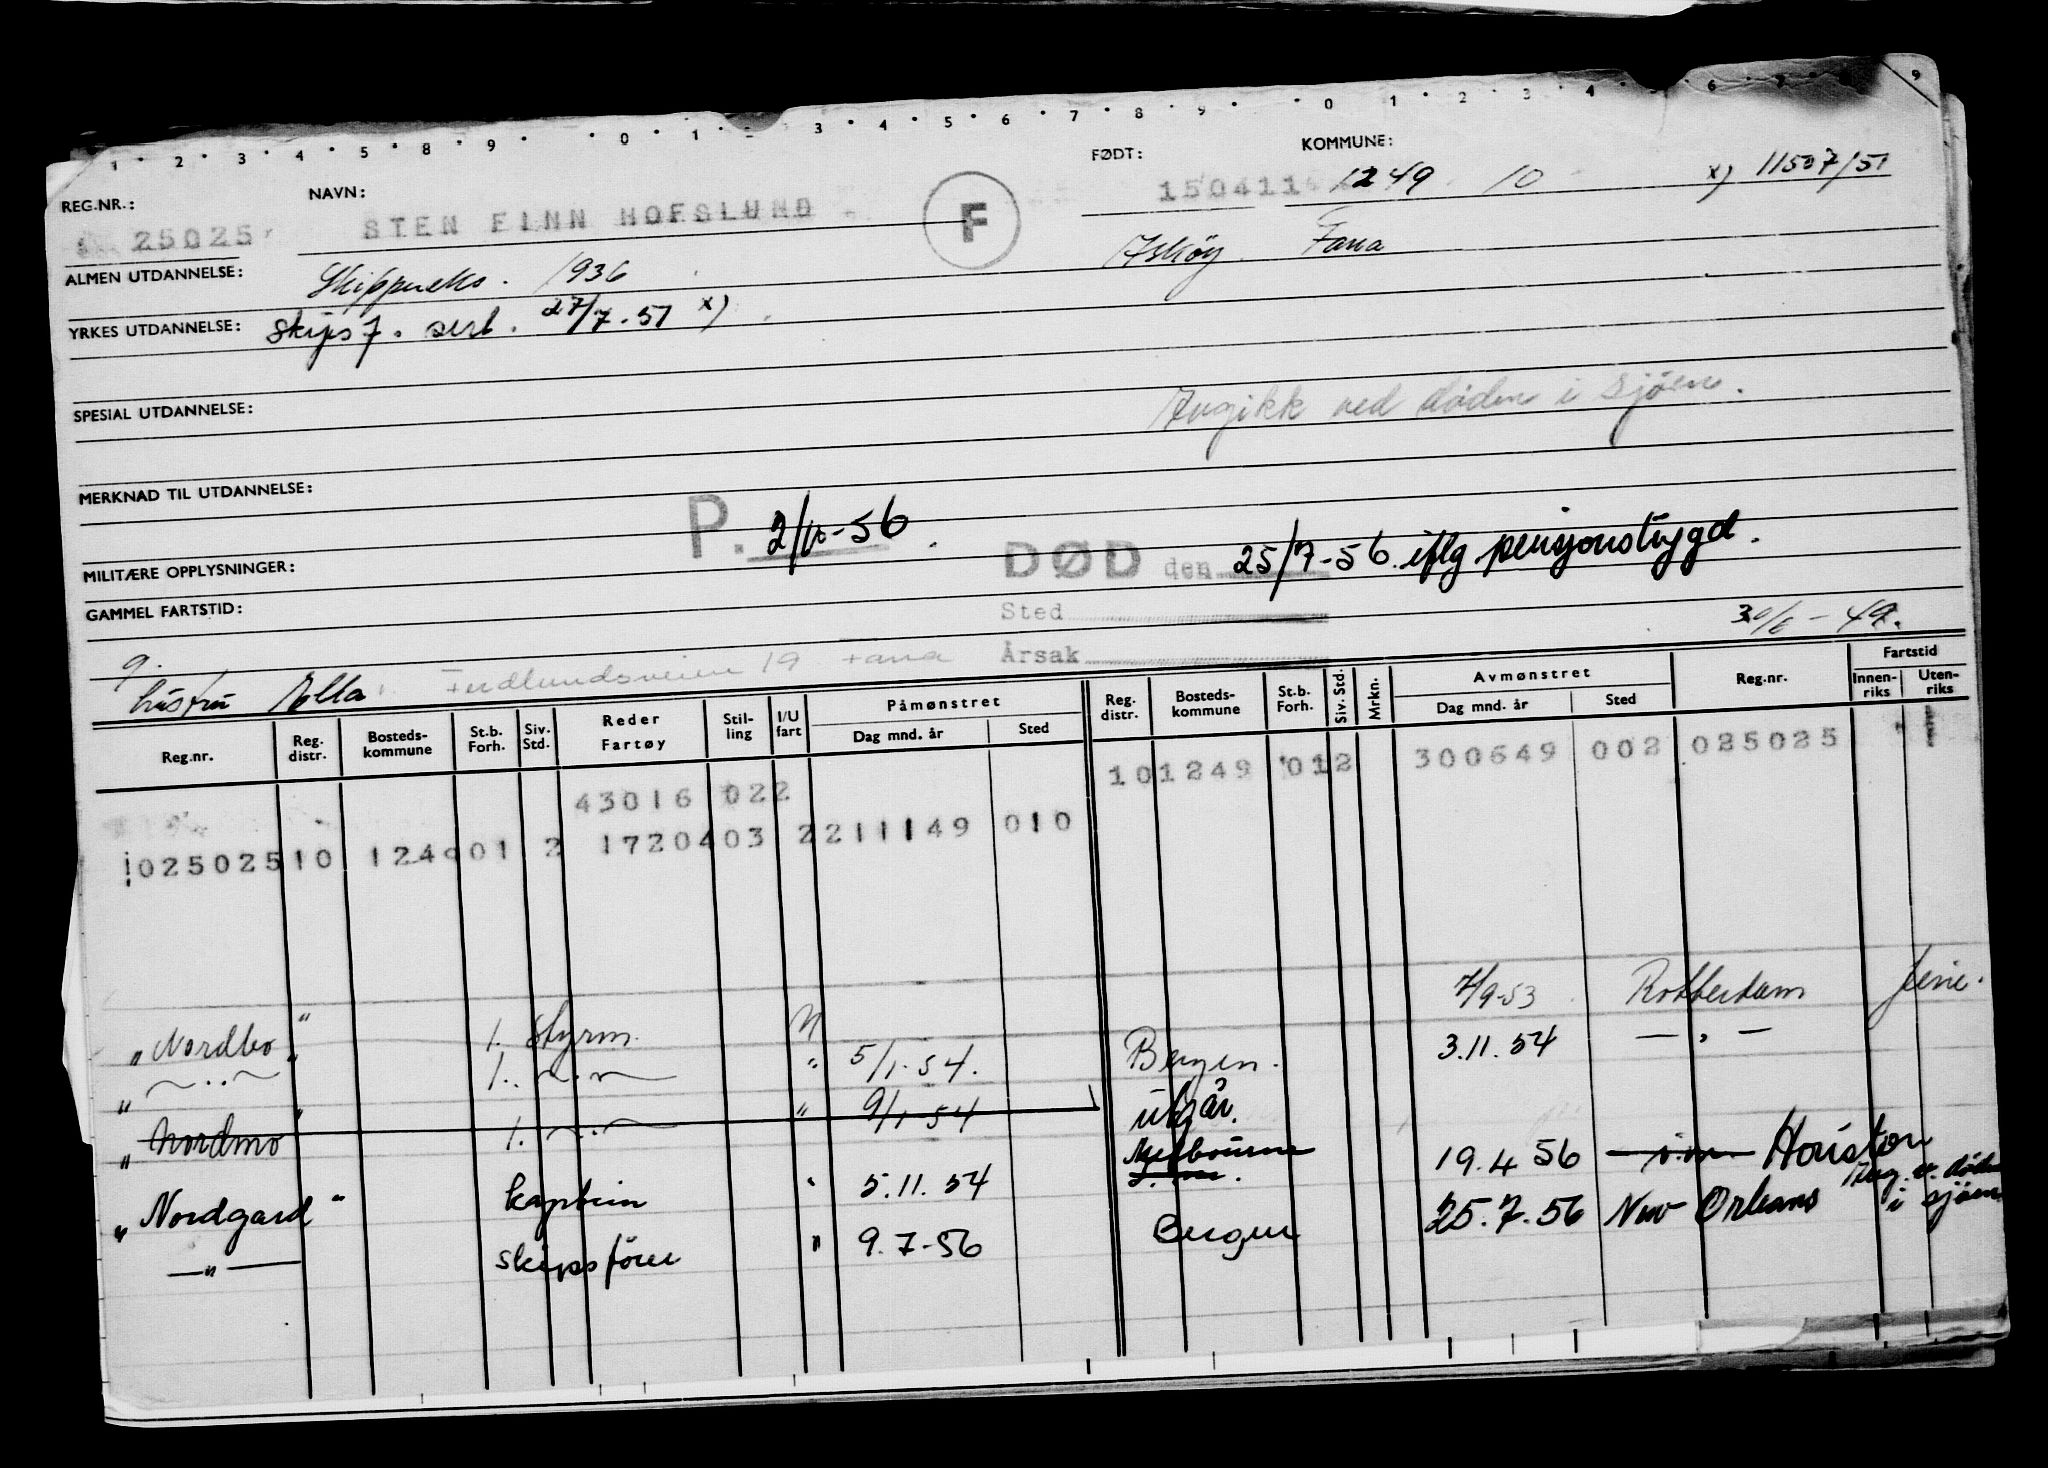 1 2 3 4 5 6 7 8 9 0 1 2 3 4 5 6 7 8 9 0 1 2 3 4 5 6 7 9
REG.NR.: NAVN: FØDT: KOMMUNE:
25025 STEN FINN HOFSLUND F 150411 1249 10 x) 11507/51
ALMEN UTDANNELSE: Skippereks. 1936 Askøy Fana
YRKES UTDANNELSE: Skips f. sert. 27/7-51 x)
SPESIAL UTDANNELSE: Avgikk ved døden i sjøen.
MERKNAD TIL UTDANNELSE:
P. -56.
MILITÆRE OPPLYSNINGER: DØD den 25/7-56. iflg pensjonstrygd.
GAMMEL FARTSTID: Sted 30/6-49.
g. Årsak
hustru Ella 19 Fana
Reg.nr. Reg. distr. Bosteds-kommune St.b. Forh. Siv. Std. Reder Fartøy Stil-ling I/U fart Påmønstret Dag mnd. år Sted Reg. distr. Bosteds-kommune St.b. Forh. Siv. Std. Mrkn. Avmønstret Dag mnd. år Sted Reg.nr. Fartstid Innen-riks Uten-riks
43016 022 101249 012 300649 002 025025
02502510 124901 2 1720403 2211149 010
7/9-53 Rotterdam ferie.
"Nordbo" 1. Styrm. U
" — " — " 1. — " — " 5/1-54. Bergen. 3.11.54 — " —
"Nordmo" 1. — " — " 9/1-54 utgår.
"Nordgard" kaptein " 5.11.54 Melbourne 19.4 56 Houston
— " — skipsfører " 9.7-56 Bergen 25.7.56 New Orleans Avg. v. døden i sjøen